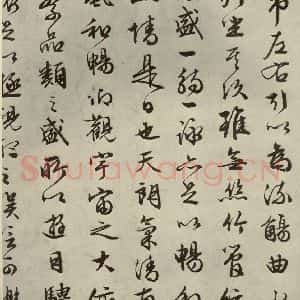 帶左右引以為流觴曲
列坐其次雖無絲竹管弦
盛一觴一詠亦足以暢敘
情是日也天朗氣清惠
風和暢仰觀宇宙之大俯
察品類之盛所以遊目騁
足以極視聽之娛信可
Shufawang.CN